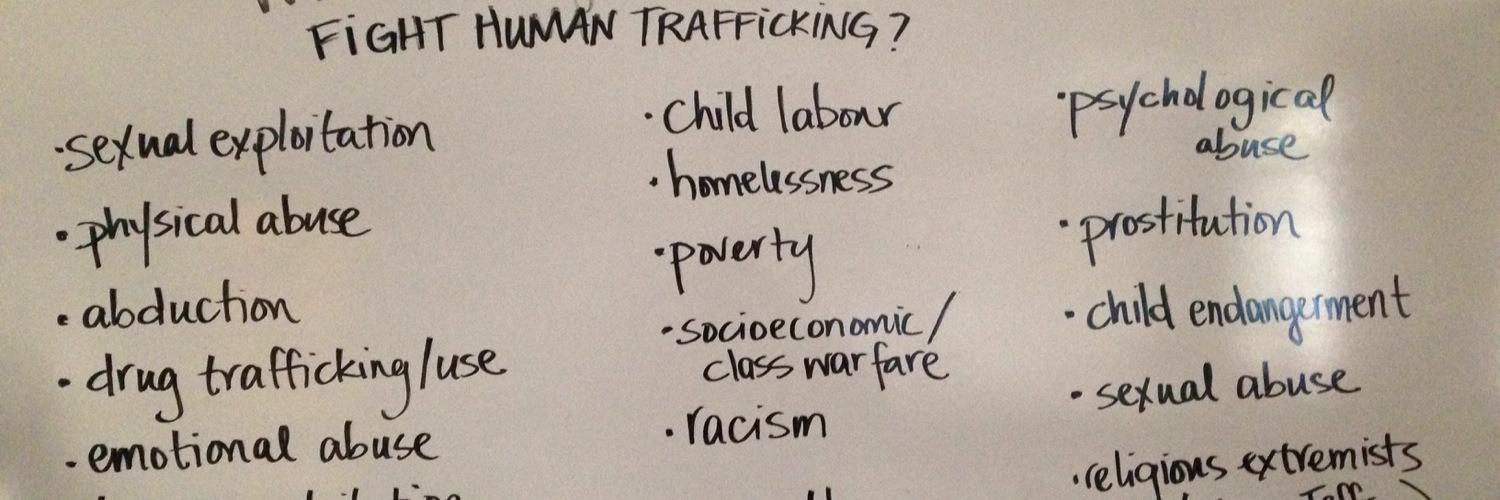 FIGHT HUMAN TRAFFICKING?
·sexual exploitation
·physical abuse
·abduction
·drug trafficking/use
·emotional abuse
·Child labour
·homelessness
·poverty
·socioeconomic/
class warfare
·racism
·psychological
abuse
·prostitution
·child endangerment
·sexual abuse
·religious extremists